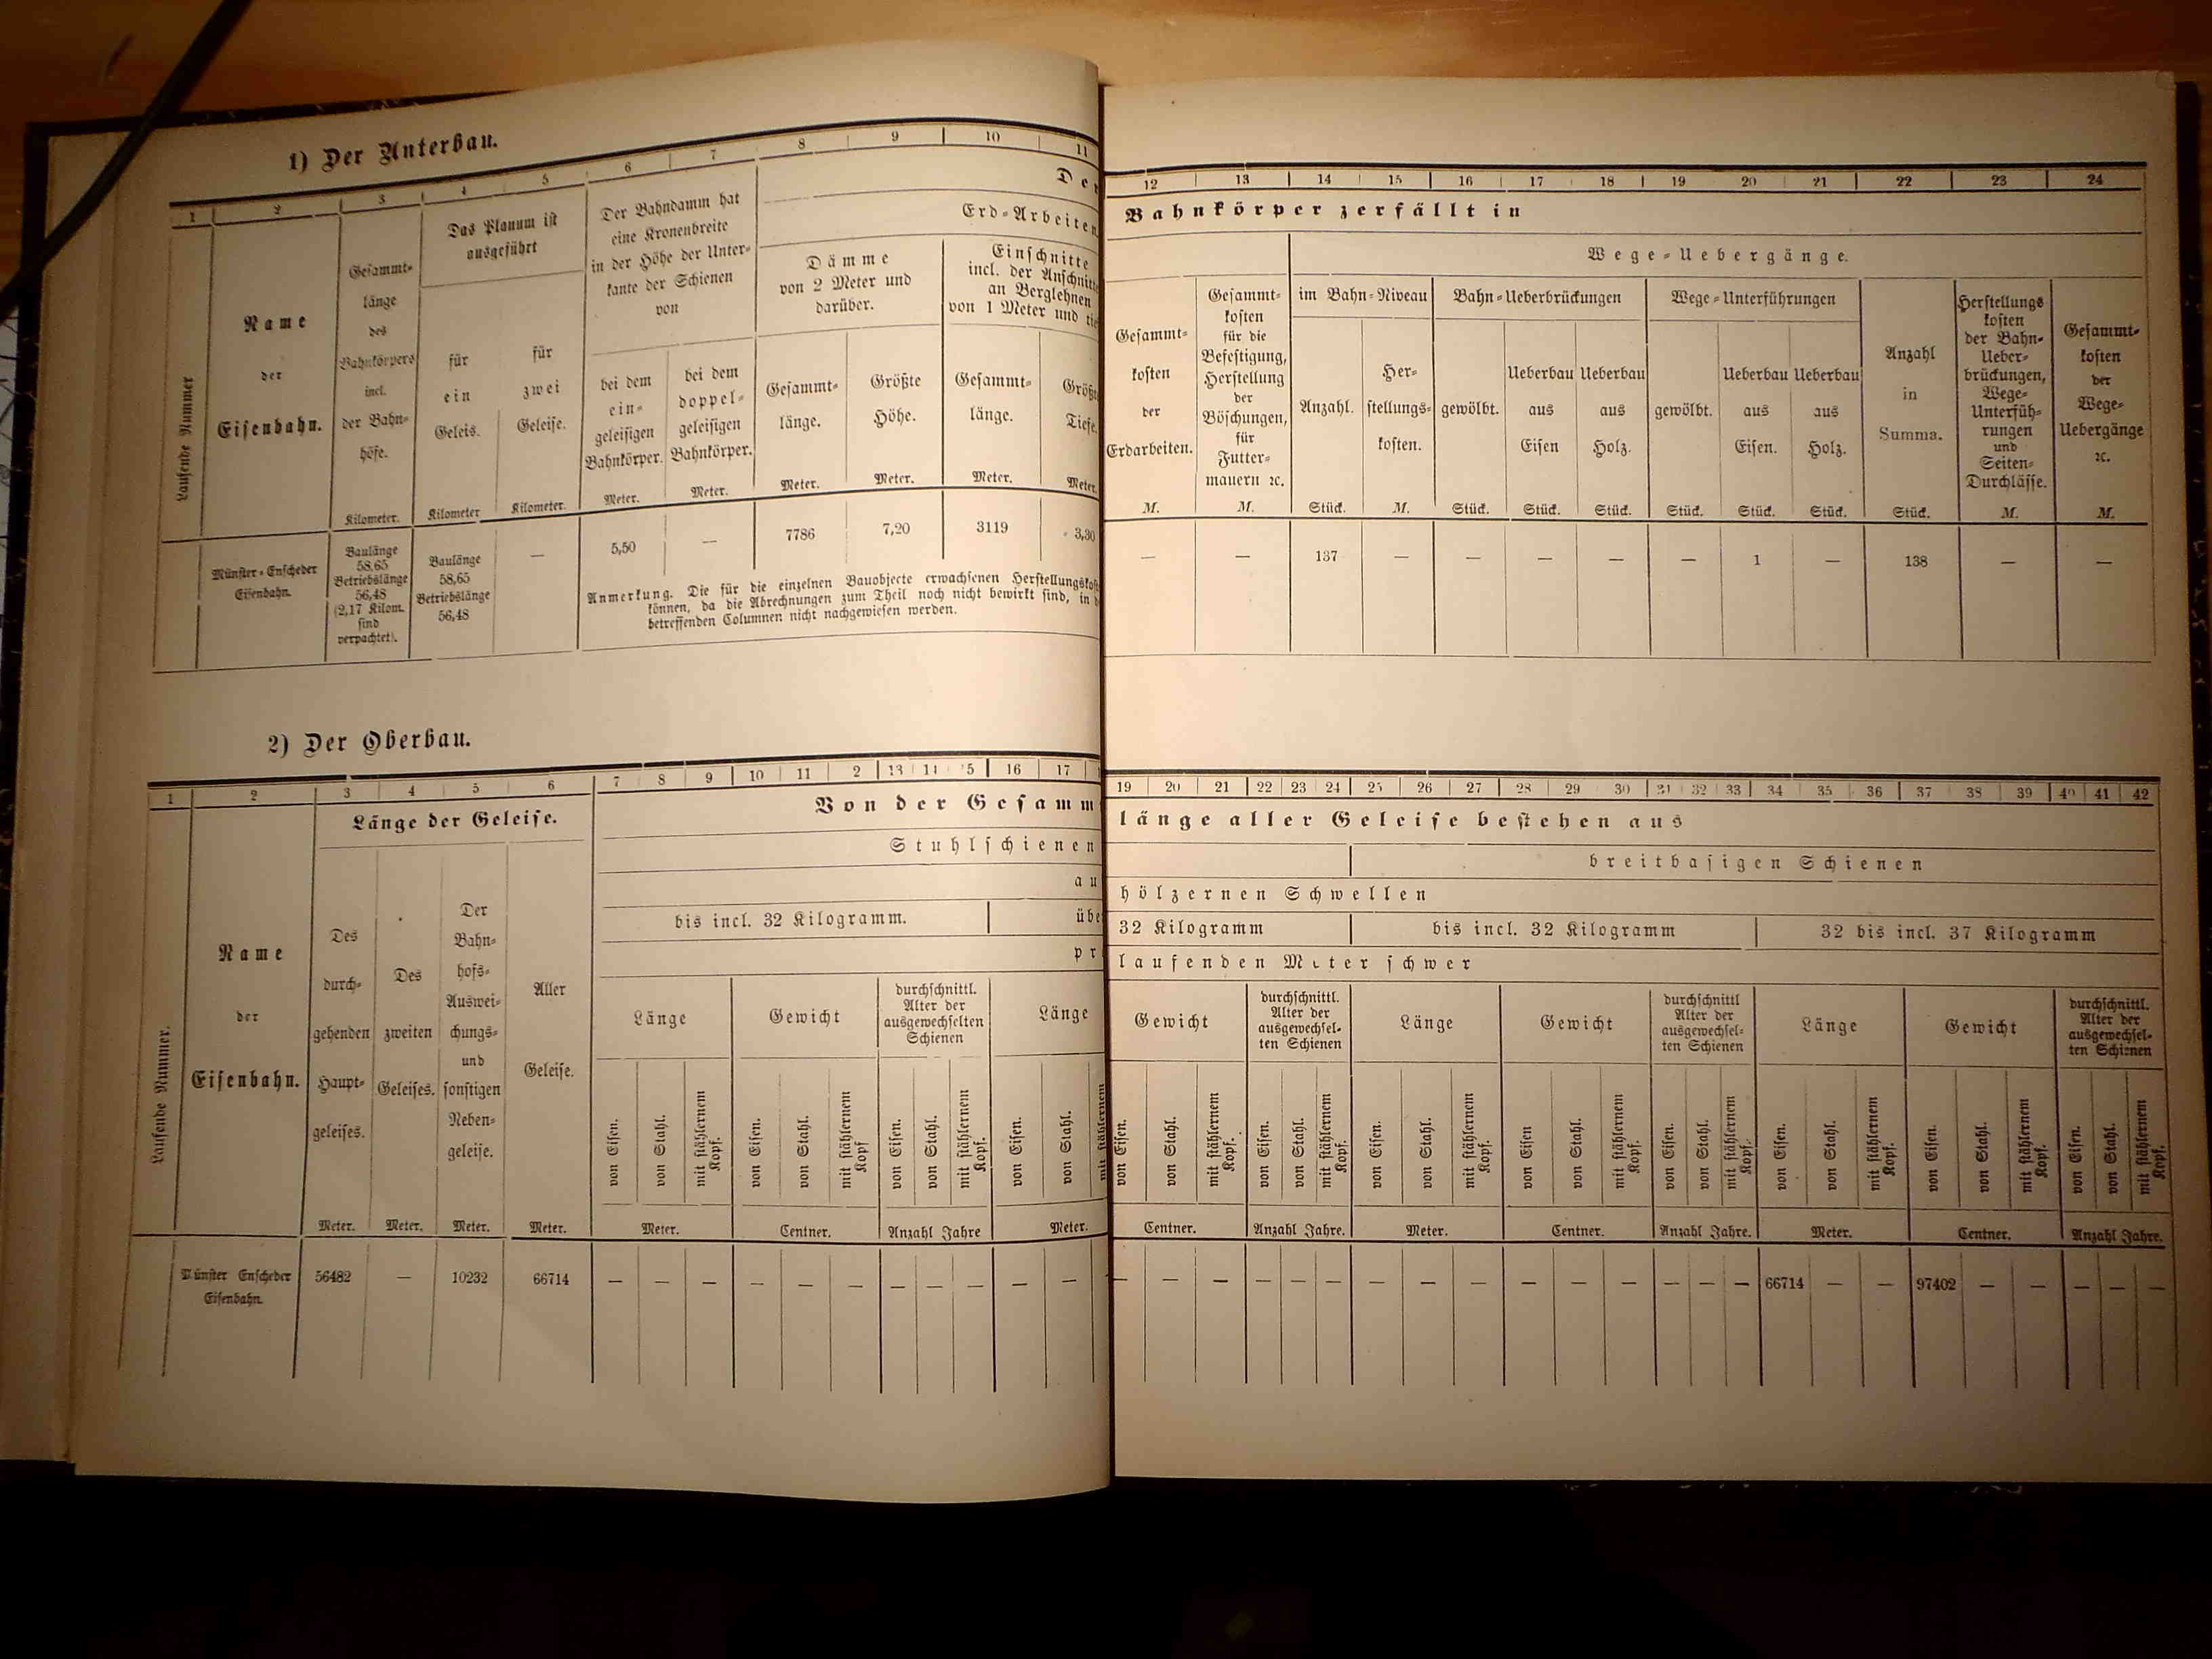 1) Der Unterbau.
1 2 3 4 5 6 7 8 9 10 11
Laufende Nummer
Name
der
Eisenbahn.
Gesammt-
länge
des
Bahnkörpers
incl.
der Bahn-
höfe.
Kilometer.
Das Planum ist
ausgeführt
für
ein
Geleis.
Kilometer
für
zwei
Geleise.
Kilometer.
Der Bahndamm hat
eine Kronenbreite
in der Höhe der Unter-
kante der Schienen
von
bei dem
ein-
geleisigen
Bahnkörper.
Meter.
bei dem
doppel-
geleisigen
Bahnkörper.
Meter.
Der
Erd-Arbeiten
Dämme
von 2 Meter und
darüber.
Gesammt-
länge.
Meter.
Größte
Höhe.
Meter.
Einschnitte
incl. der Anschnitte
an Berglehnen
von 1 Meter und
Gesammt-
länge.
Meter.
Größte
Tiefe.
Meter.
Münster-Enscheder
Eisenbahn.
Baulänge
58,65
Betriebslänge
56,48
(2,17 Kilom.
sind
verpachtet).
Baulänge
58,65
Betriebslänge
56,48
—
5,50
—
7786
7,20
3119
3,30
Anmerkung. Die für die einzelnen Bauobjecte erwachsenen Herstellungskosten
können, da die Abrechnungen zum Theil noch nicht bewirkt sind, in
betreffenden Columnen nicht nachgewiesen werden.
12 13 14 15 16 17 18 19 20 21 22 23 24
Bahnkörper zerfällt in
Wege-Uebergänge.
Gesammt-
kosten
der
Erdarbeiten.
M.
Gesammt-
kosten
für die
Befestigung,
Herstellung
der
Böschungen,
für
Futter-
mauern ꝛc.
M.
im Bahn-Niveau
Anzahl.
Stück.
Her-
stellungs-
kosten.
M.
Bahn-Ueberbrückungen
gewölbt.
Stück.
Ueberbau
aus
Eisen
Stück.
Ueberbau
aus
Holz.
Stück.
Wege-Unterführungen
gewölbt.
Stück.
Ueberbau
aus
Eisen.
Stück.
Ueberbau
aus
Holz.
Stück.
Anzahl
in
Summa.
Stück.
Herstellungs
kosten
der Bahn-
Ueber-
brückungen,
Wege-
Unterfüh-
rungen
und
Seiten-
Durchlässe.
M.
Gesammt-
kosten
der
Wege-
Uebergänge
ꝛc.
M.
— — 137 — — — — — 1 — 138 — —
2) Der Oberbau.
1 2 3 4 5 6 7 8 9 10 11 2 13 14 15 16 17
Laufende Nummer.
Name
der
Eisenbahn.
Länge der Geleise.
Des
durch-
gehenden
Haupt-
geleises.
Meter.
Des
zweiten
Geleises.
Meter.
Der
Bahn-
hofs-
Auswei-
chungs-
und
sonstigen
Neben-
geleise.
Meter.
Aller
Geleise.
Meter.
Von der Gesamm
Stuhlschienen
au
bis incl. 32 Kilogramm.
übe
pr
Länge
von Eisen.
von Stahl.
mit stählernem
Kopf.
Meter.
Gewicht
von Eisen.
von Stahl.
mit stählernem
Kopf
Centner.
durchschnittl.
Alter der
ausgewechselten
Schienen
von Eisen.
von Stahl.
mit stählernem
Kopf.
Anzahl Jahre
Länge
von Eisen.
von Stahl.
mit stählernem
Meter.
Münster Enscheder
Eisenbahn.
56482 — 10232 66714 — — — — — — — — — — —
19 20 21 22 23 24 25 26 27 28 29 30 31 32 33 34 35 36 37 38 39 40 41 42
länge aller Geleise bestehen aus
breitbasigen Schienen
hölzernen Schwellen
32 Kilogramm
bis incl. 32 Kilogramm
32 bis incl. 37 Kilogramm
laufenden Meter schwer
Gewicht
von Eisen.
von Stahl.
mit stählernem
Kopf.
Centner.
durchschnittl.
Alter der
ausgewechsel-
ten Schienen
von Eisen.
von Stahl.
mit stählernem
Kopf.
Anzahl Jahre.
Länge
von Eisen.
von Stahl.
mit stählernem
Kopf.
Meter.
Gewicht
von Eisen
von Stahl.
mit stählernem
Kopf.
Centner.
durchschnittl
Alter der
ausgewechsel-
ten Schienen
von Eisen.
von Stahl.
mit stählernem
Kopf.
Anzahl Jahre.
Länge
von Eisen.
von Stahl.
mit stählernem
Kopf.
Meter.
Gewicht
von Eisen.
von Stahl.
mit stählernem
Kopf.
Centner.
durchschnittl.
Alter der
ausgewechsel-
ten Schienen
von Eisen.
von Stahl.
mit stählernem
Kopf.
Anzahl Jahre.
— — — — — — — — — — — — — — — 66714 — — 97402 — — — — —